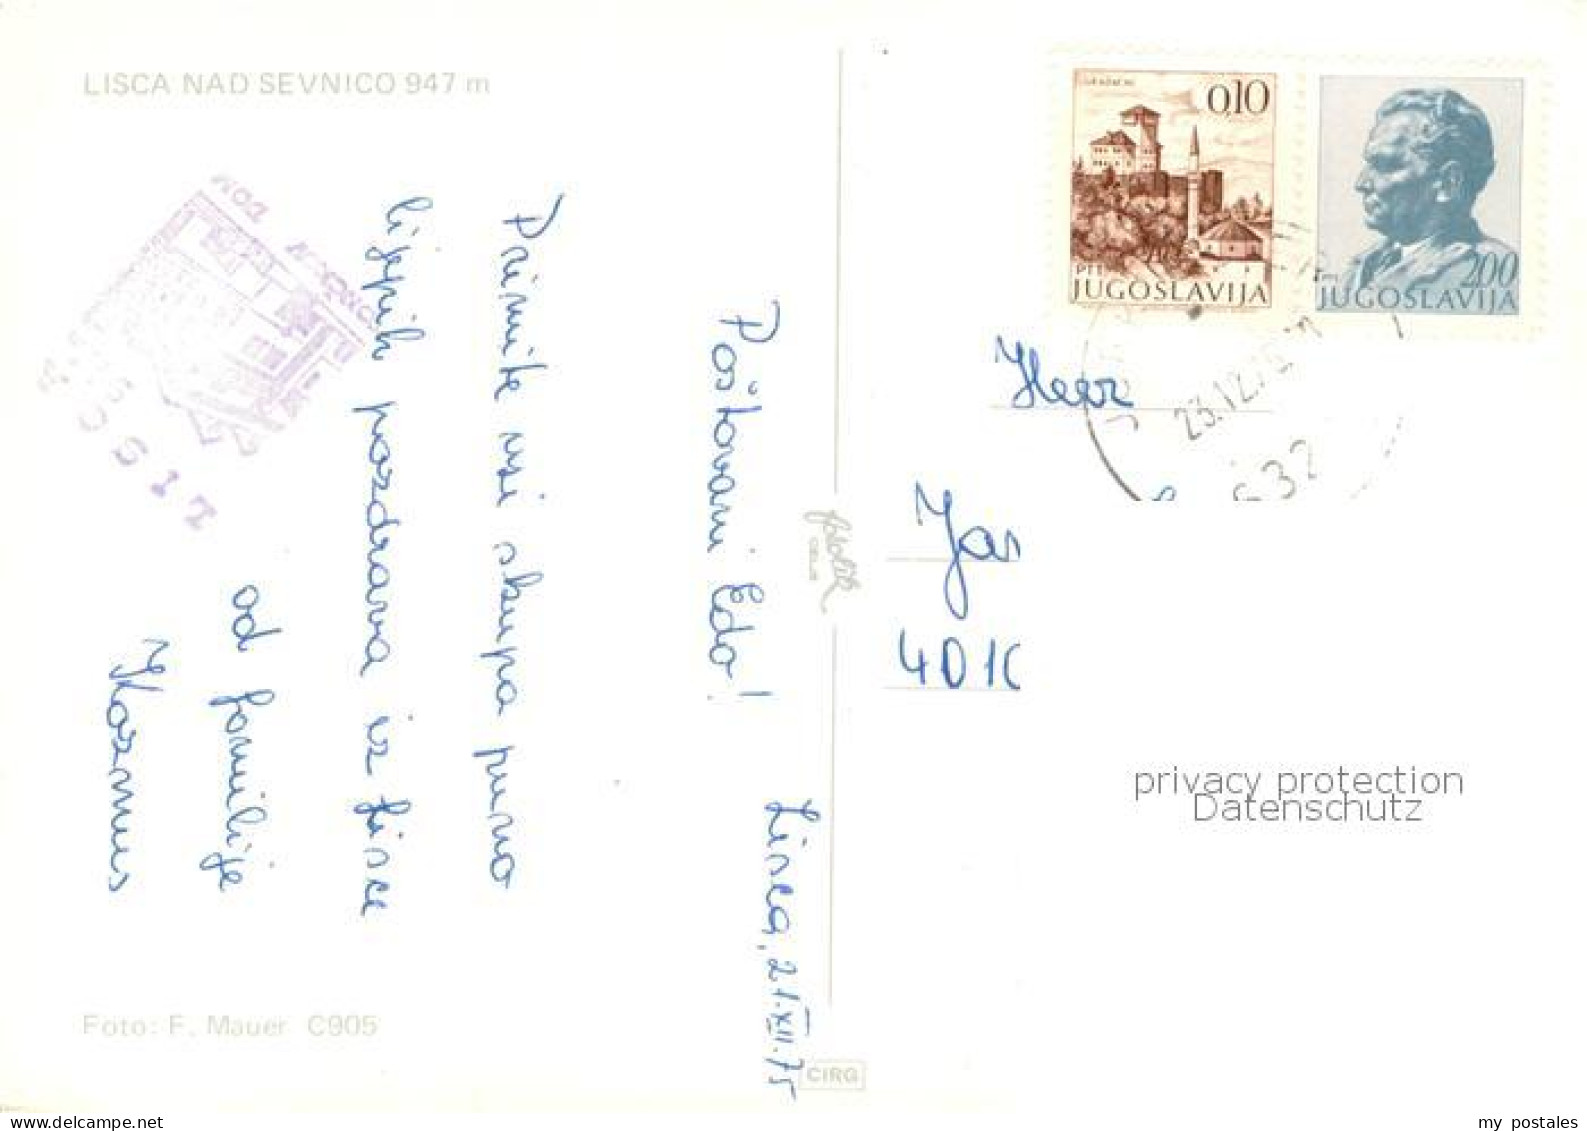 LISCA NAD SEVNICO 947 m
Lisca, 21.XII.75
Poštovani Edo!
Primite vsi skupa puno
lijepih pozdrava iz Lisce
od familije
Kozmus
TOSIT
Foto: F. Mauer C905
fotolik
CELJE
CIRG
GRADAČAC
0,10
PTT
JUGOSLAVIJA
2,00
PTT
JUGOSLAVIJA
23.12.75
632
Herr
Jas
401
privacy protection
Datenschutz
my postales